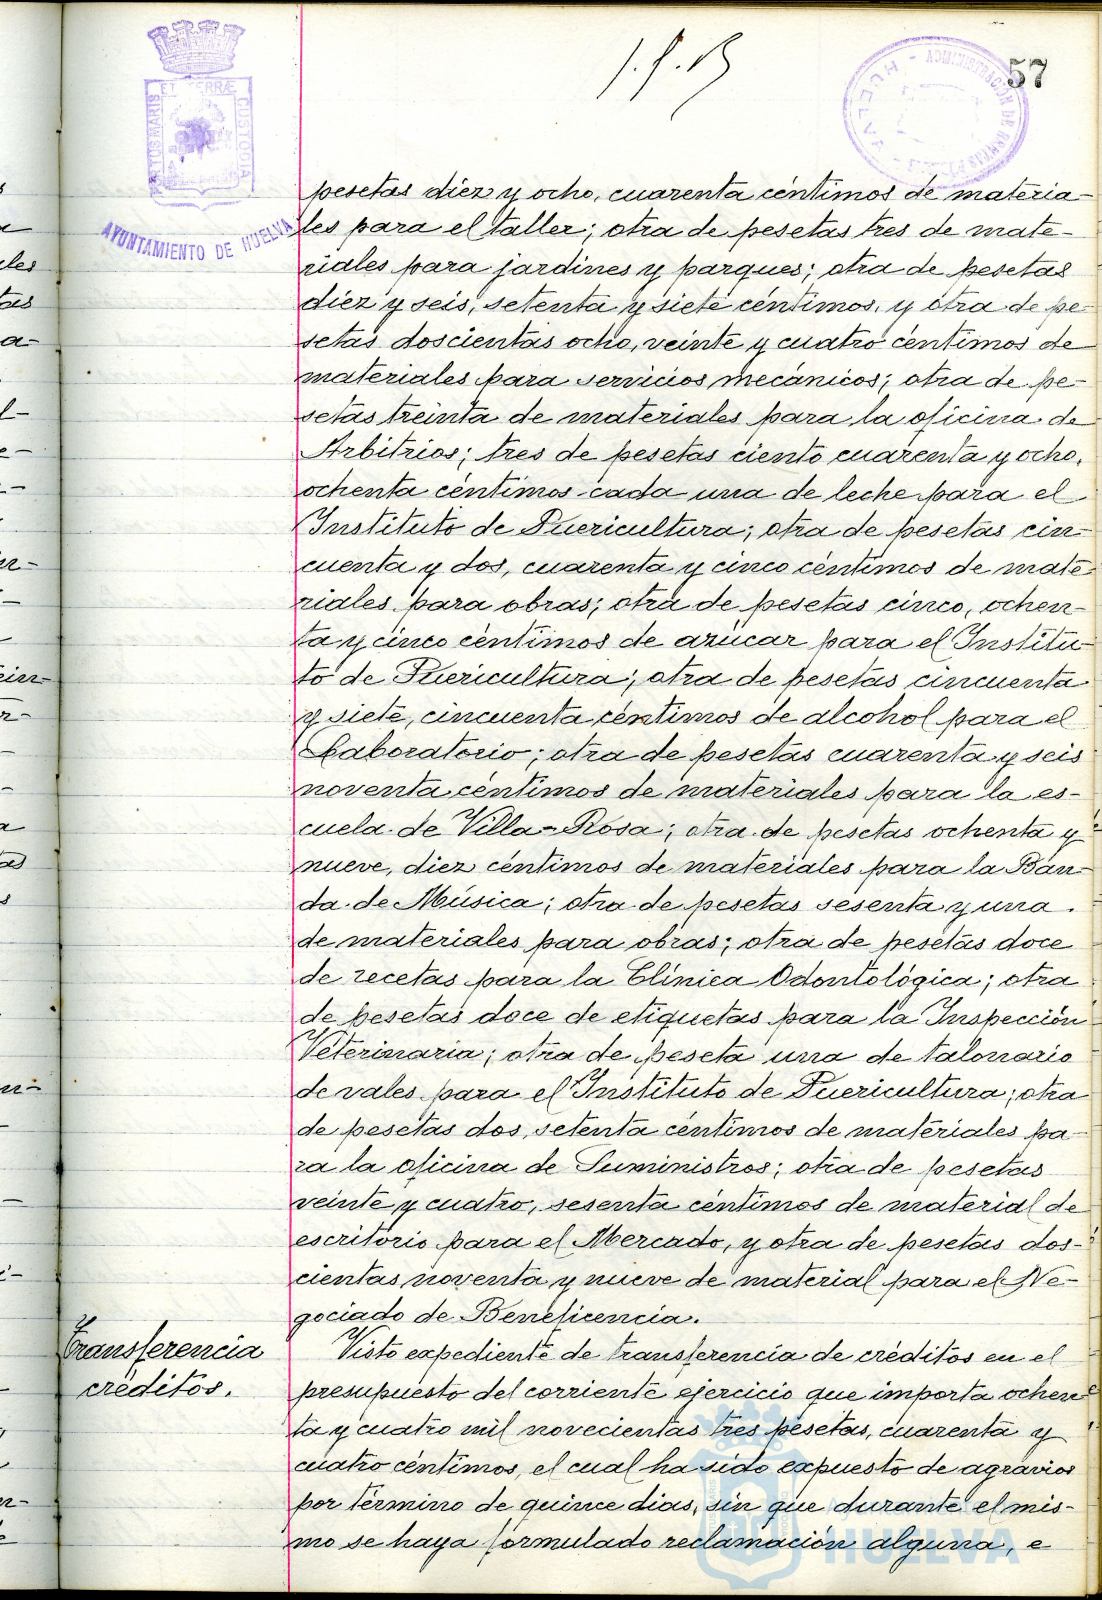 57
PORTUS MARIS ET TERRÆ CUSTODIA
AYUNTAMIENTO DE HUELVA
pesetas diez y ocho, cuarenta céntimos de materia-
les para el taller; otra de pesetas tres de mate-
riales para jardines y parques; otra de pesetas
diez y seis, setenta y siete céntimos, y otra de pe-
setas doscientas ocho, veinte y cuatro céntimos de
materiales para servicios mecánicos; otra de pe-
setas treinta de materiales para la oficina de
Arbitrios; tres de pesetas ciento cuarenta y ocho,
ochenta céntimos cada una de leche para el
Instituto de Puericultura; otra de pesetas cin-
cuenta y dos, cuarenta y cinco céntimos de mate-
riales para obras; otra de pesetas cinco, ochen-
ta y cinco céntimos de azúcar para el Institu-
to de Puericultura; otra de pesetas cincuenta
y siete, cincuenta céntimos de alcohol para el
Laboratorio; otra de pesetas cuarenta y seis
noventa céntimos de materiales para la es-
cuela de Villa-Rosa; otra de pesetas ochenta y
nueve, diez céntimos de materiales para la Ban-
da de Música; otra de pesetas sesenta y una
de materiales para obras; otra de pesetas doce
de recetas para la Clínica Odontológica; otra
de pesetas doce de etiquetas para la Inspección
Veterinaria; otra de peseta una de talonario
de vales para el Instituto de Puericultura; otra
de pesetas dos, setenta céntimos de materiales pa-
ra la oficina de Suministros; otra de pesetas
veinte y cuatro, sesenta céntimos de material de
escritorio para el Mercado, y otra de pesetas dos-
cientas noventa y nueve de material para el Ne-
gociado de Beneficencia.
Transferencia
créditos.
Visto expediente de transferencia de créditos en el
presupuesto del corriente ejercicio que importa ochen-
ta y cuatro mil novecientas tres pesetas, cuarenta y
cuatro céntimos, el cual ha sido expuesto de agravios
por término de quince dias, sin que durante el mis-
mo se haya formulado reclamación alguna, e
HUELVA